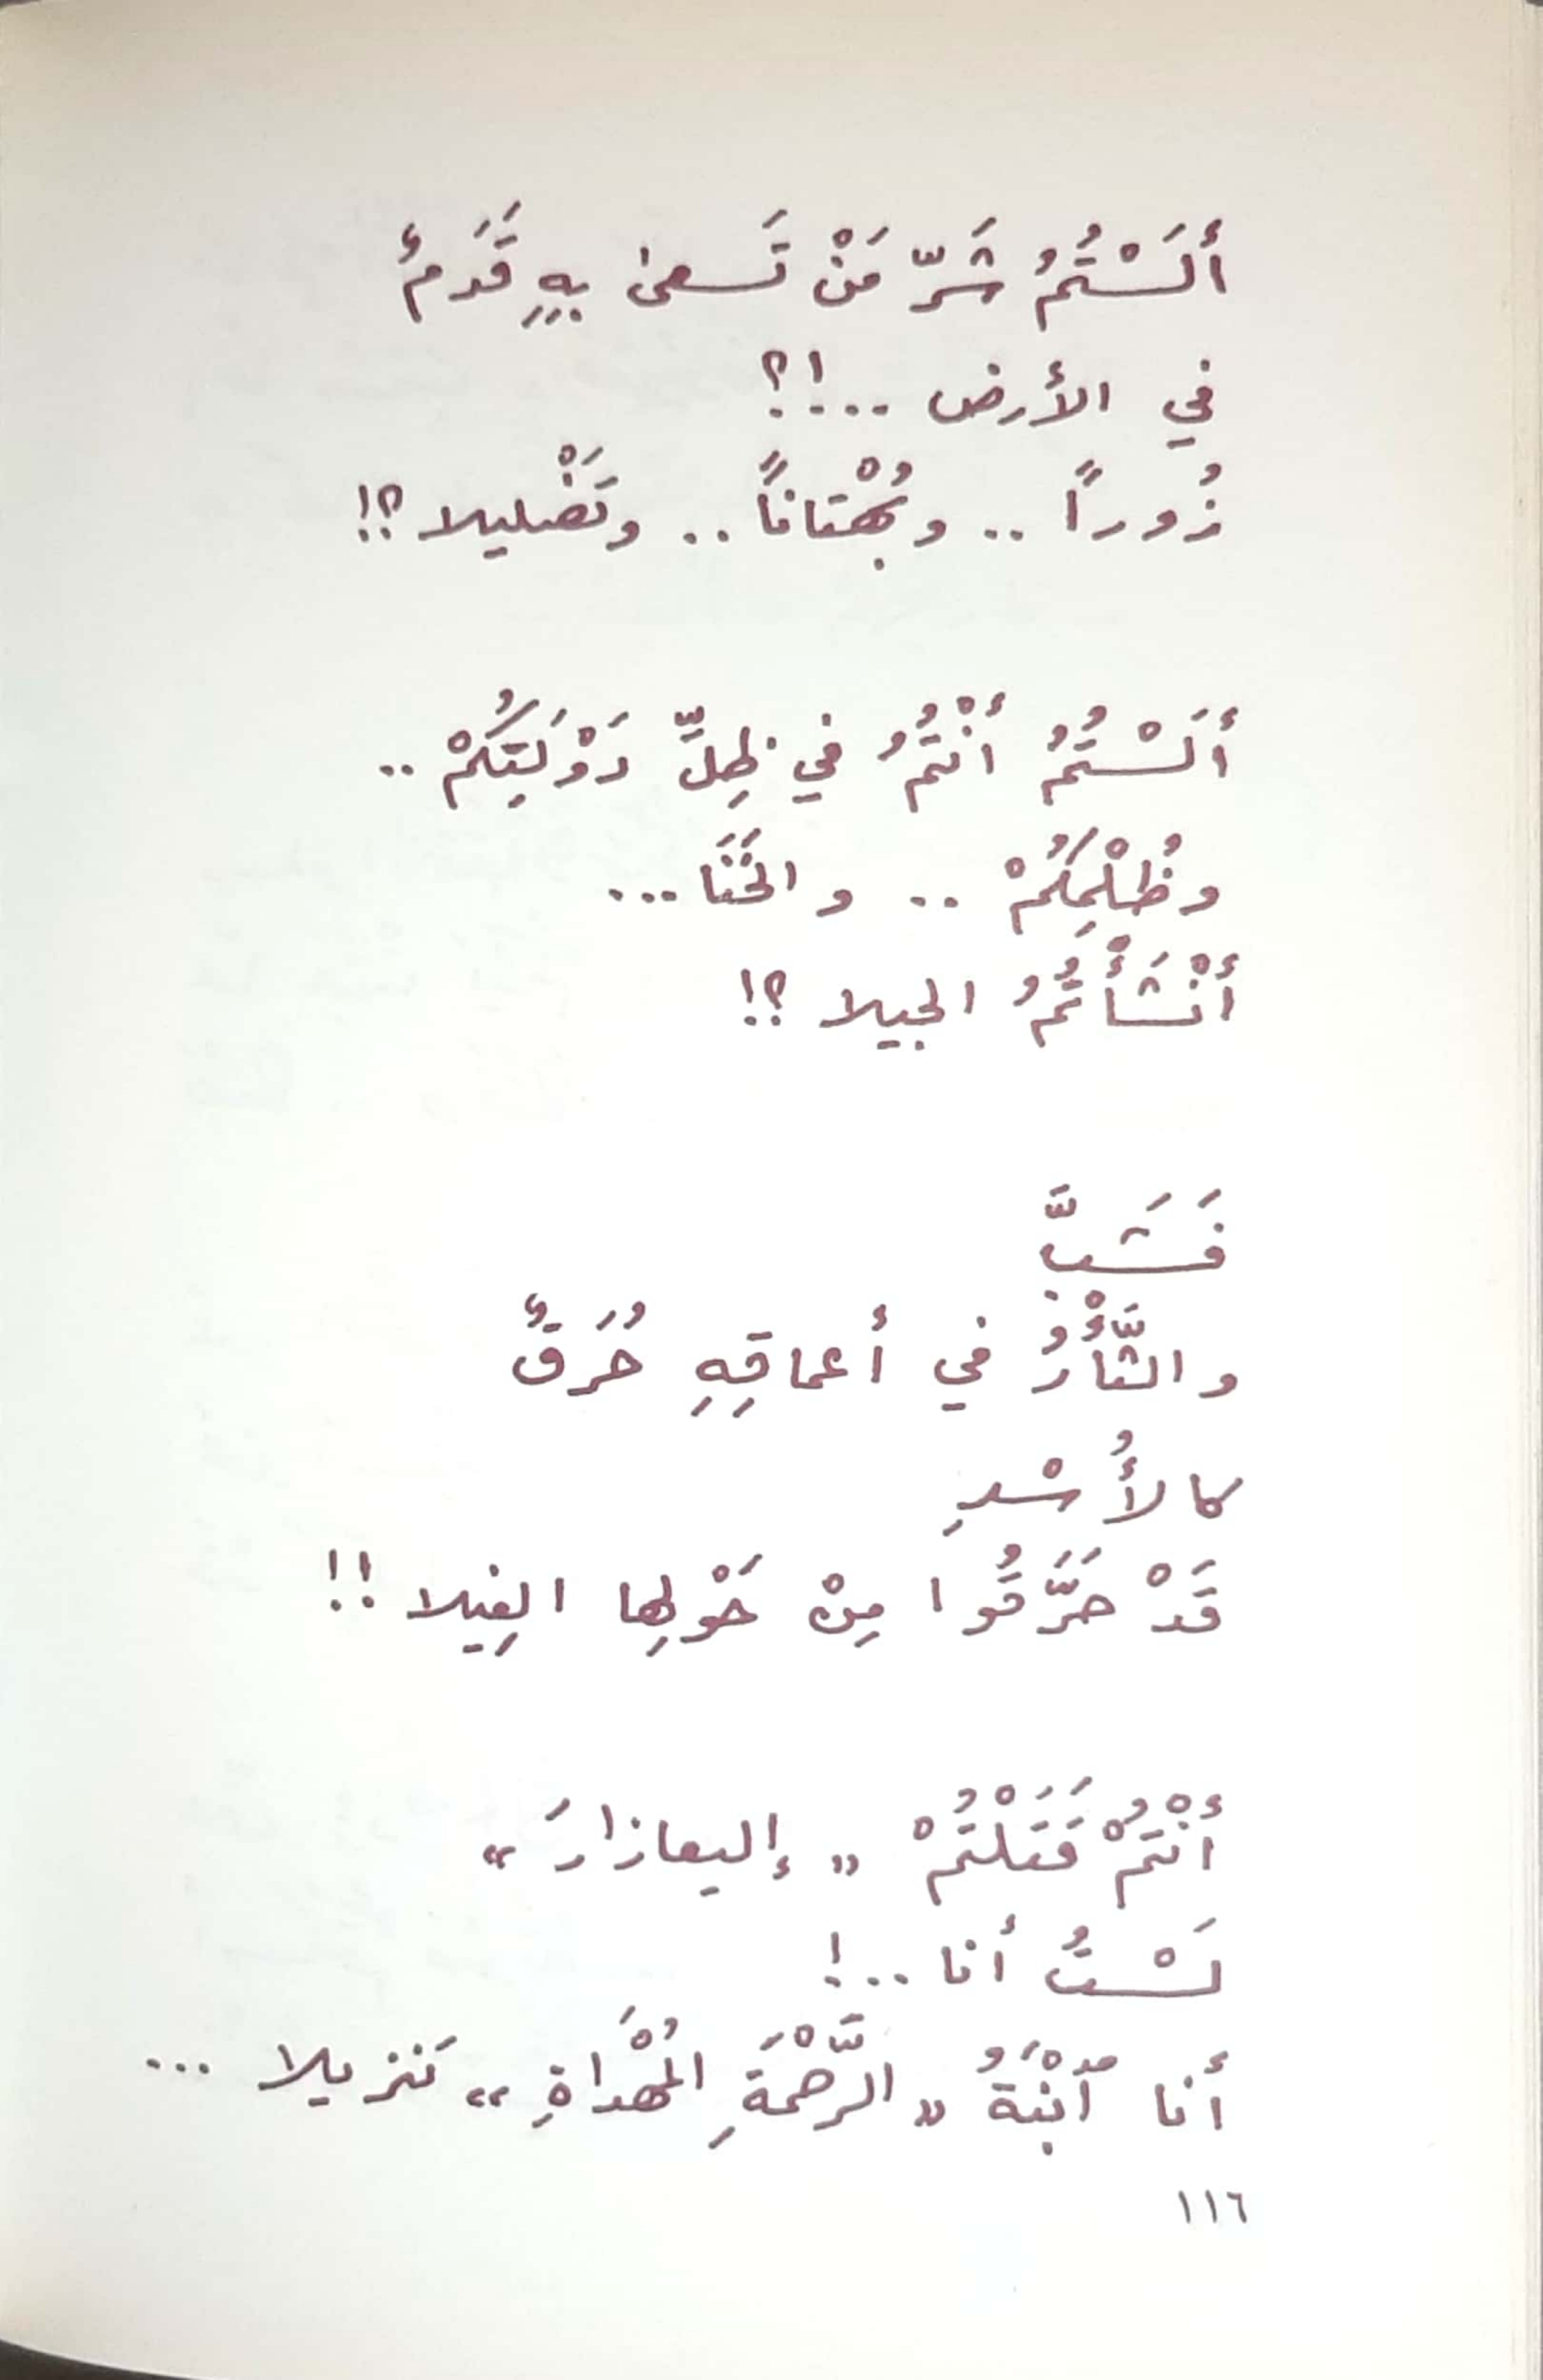 أَلَسْتُمُ شَرّ مَنْ تَسعىٰ بِهِ قَدَمٌ
في الأرض ..!؟
زُوراً .. وبُهْتاناً .. وتَضْليلا ؟!
أَلَسْتُمُ أَنْتُمُ في ظِلِّ دَوْلَتِكُمْ ..
وظُلْمِكُمْ .. والخَنَا ...
أَنْشَأْتُمُ الجيلا ؟!
فَشَبَّ
والثَّأْرُ في أعماقِهِ حُرَقٌ
كالأُسْدِ
قَدْ حَرَّقُوا مِنْ حَوْلِها الغِيلا !!
أَنْتُمْ قَتَلْتُمْ « إليعازارَ »
لَسْتُ أنا ..!
أنا آبْنَةُ « الرَّحْمَةِ المُهْدَاةِ » تَنزيلا ...
١١٦